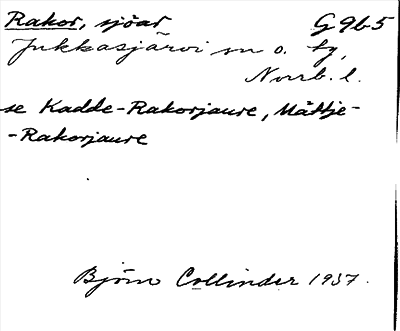 Rakor, sjöar G9b5
Jukkasjärvi sn o. tg,
Norrb. l.
se Kadde-Rakorjaure, Måttje-
-Rakorjaure
Björn Collinder 1937.